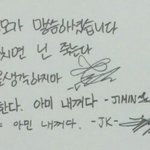 모가 말씀하셨습니다
치면 넌 죽는다
을생각하지마
한다. 아미 내꺼다 -JIMIN
아민 내꺼다. -JK-